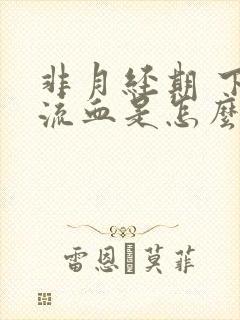 非月经期 下
流血是怎麼
雷恩·莫菲